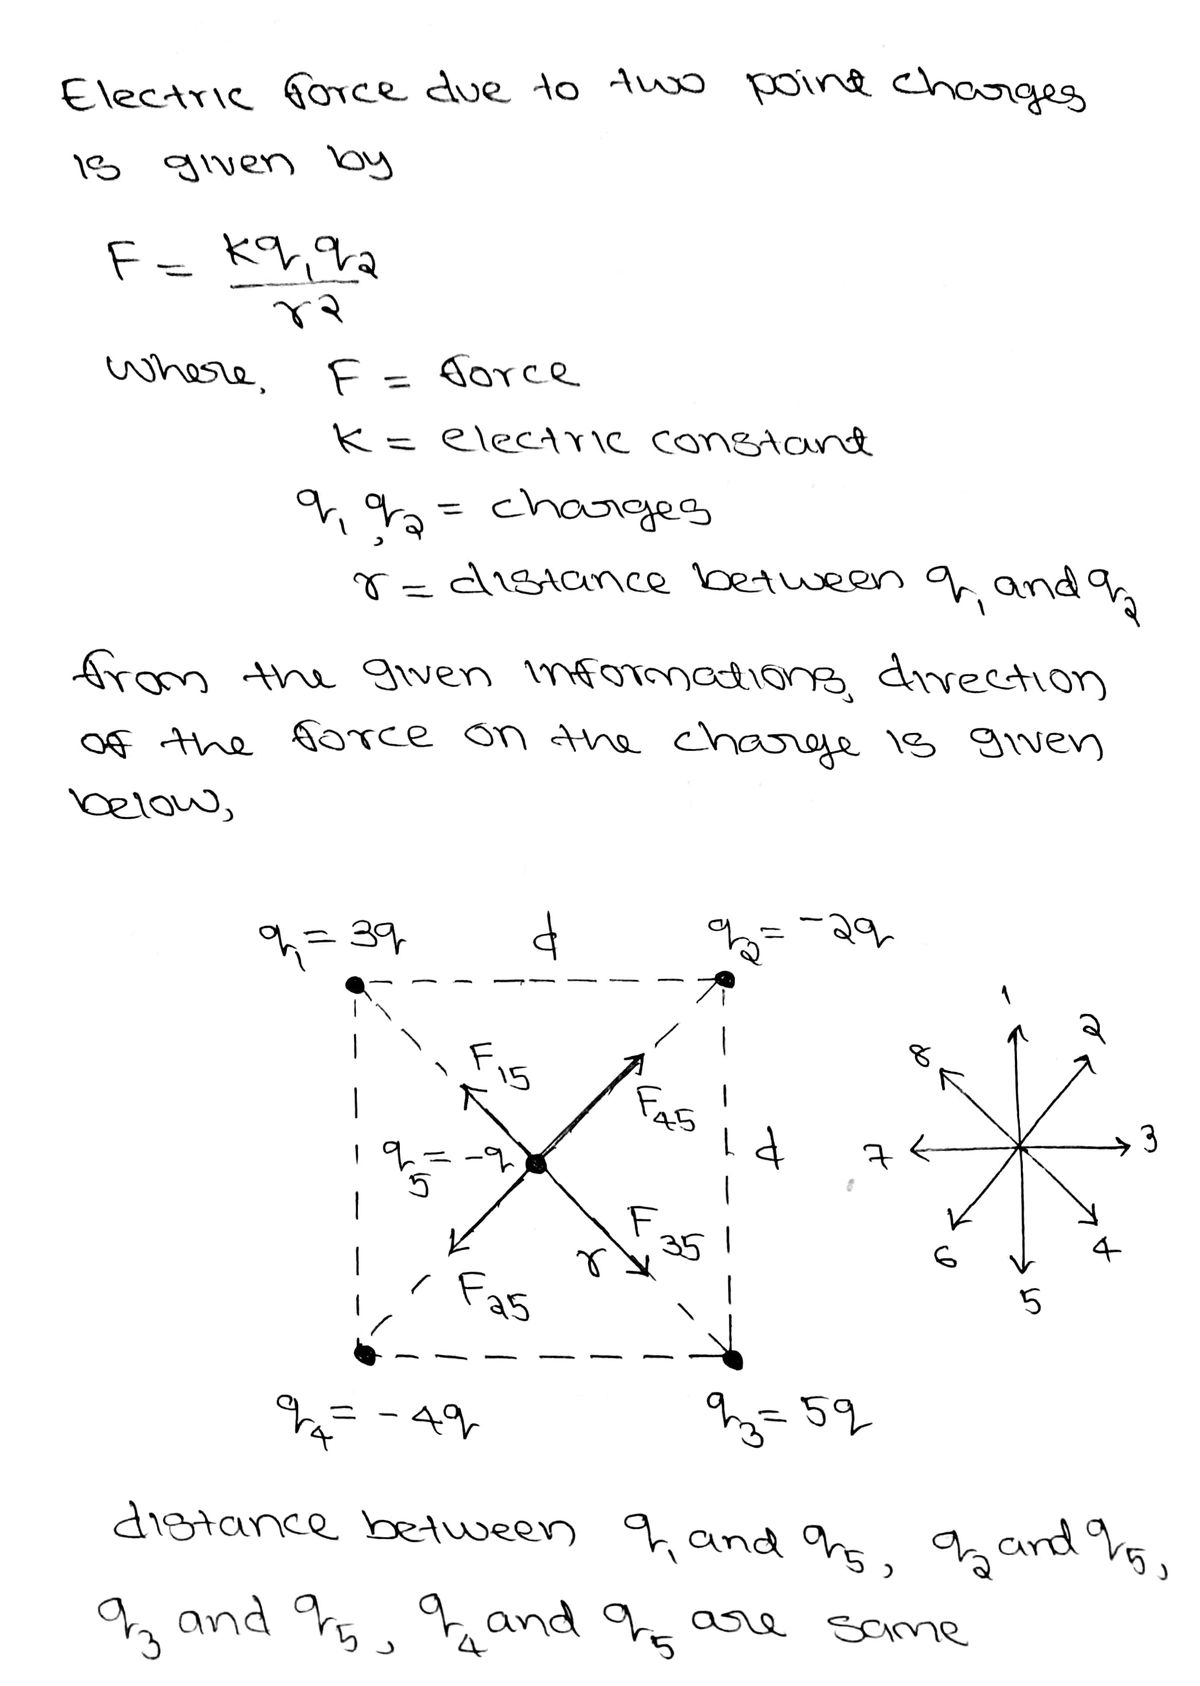 Electric force due to two point charges
is given by
F = kq₁q₂
r2
where, F = force
k = electric constant
q₁, q₂ = charges
r = distance between q₁ and q₂
from the given informations, direction
of the force on the charge is given
below,
q₁ = 3q d q₂ = -2q
1
8 2
F₁₅
F₄₅
q₅ = -q d 7 3
F₃₅
r 6 4
F₂₅ 5
q₄ = -4q q₃ = 5q
distance between q₁ and q₅, q₂ and q₅,
q₃ and q₅, q₄ and q₅ are same